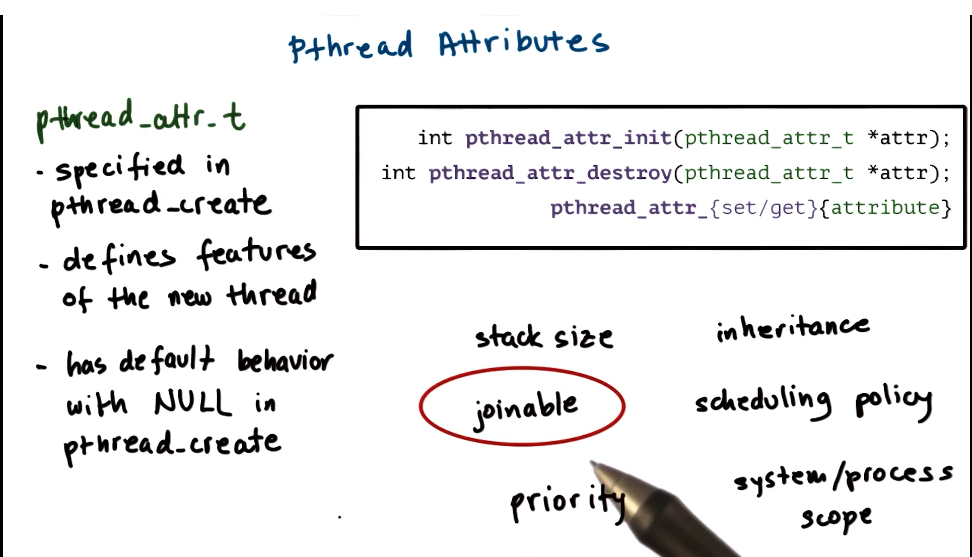 Pthread Attributes
pthread_attr_t
- specified in
pthread_create
- defines features
of the new thread
- has default behavior
with NULL in
pthread_create
int pthread_attr_init(pthread_attr_t *attr);
int pthread_attr_destroy(pthread_attr_t *attr);
pthread_attr_{set/get}{attribute}
stack size
inheritance
joinable
scheduling policy
priority
system/process
scope